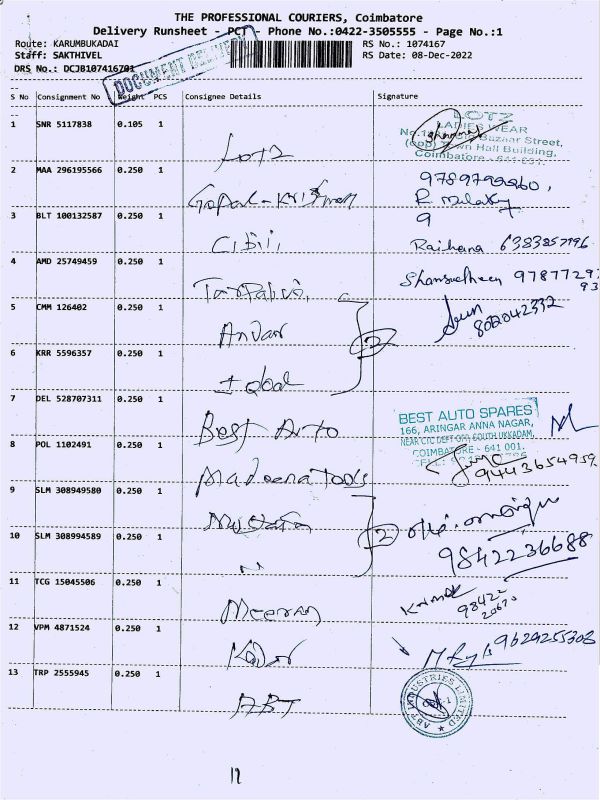 THE PROFESSIONAL COURIERS, Coimbatore
Delivery Runsheet - PCT - Phone No.:0422-3505555 - Page No.:1
Route: KARUMBUKADAI RS No.: 1074167
Staff: SAKTHIVEL RS Date: 08-Dec-2022
DRS No.: DCJB107416701
DOCUMENT DELIVERY
S No Consignment No Weight PCS Consignee Details Signature
1 SNR 5117838 0.105 1 Lotz
LOTZ
LADIES WEAR
Bazaar Street,
Town Hall Building,
Coimbatore - 641 001.
2 MAA 296195566 0.250 1 Gopal-Krishnan
3 BLT 100132587 0.250 1 Raihana 6383257196
4 AMD 25749459 0.250 1 97877297
93
5 CMM 126402 0.250 1 Anvar
2
6 KRR 5596357 0.250 1 Iqbal
7 DEL 528707311 0.250 1 Best Auto
BEST AUTO SPARES
166, ARINGAR ANNA NAGAR,
NEAR CTC DEPT OFF, SOUTH UKKADAM,
COIMBATORE - 641 001.
8 POL 1102491 0.250 1 Madeena Tools 9443654959
9 SLM 308949580 0.250 1 Mustafa
2
10 SLM 308994589 0.250 1 " 9842236688
11 TCG 15045506 0.250 1 Meeran
98422
20670
12 VPM 4871524 0.250 1 Kader 9629255308
13 TRP 2555945 0.250 1 ABT
ABT INDUSTRIES LIMITED